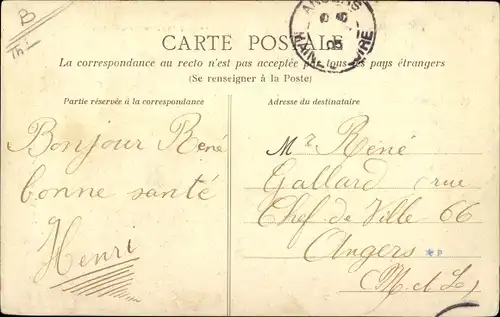 B
Th.
ANGERS
05
MAINE LOIRE
CARTE POSTALE
La correspondance au recto n'est pas acceptée par tous les pays étrangers
(Se renseigner à la Poste)
Partie réservée à la correspondance
Bonjour René
bonne santé
Henri
Adresse du destinataire
Mr René
Gallard rue
Chef de Ville 66
Angers
(M. et L.)